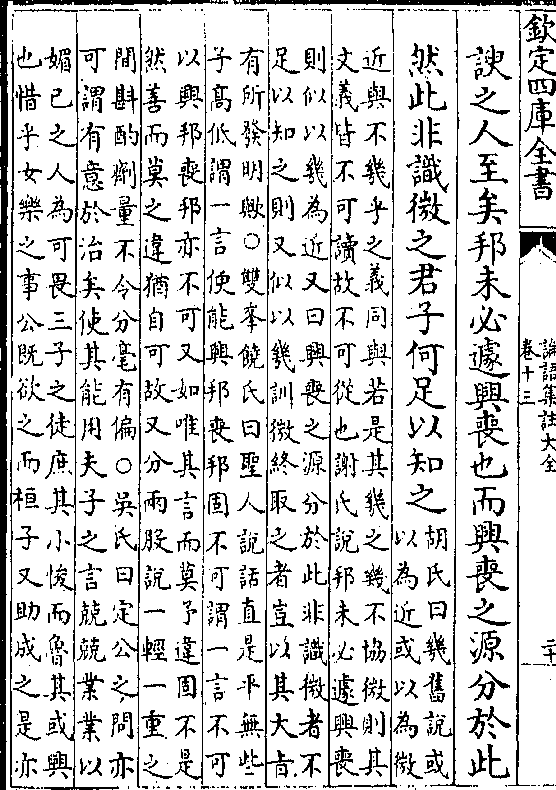 欽定四庫全書
論語集註大全
卷十三
二十
諛之人至矣邦未必遽興喪也而興喪之源分於此
然此非識微之君子何足以知之
胡氏曰幾舊說或
以為近或以為微
近與不幾乎之義同與若是其幾之幾不協微則其
文義皆不可讀故不可從也謝氏說邦未必遽興喪
則似以幾為近又曰興喪之源分於此非識微者不
足以知之則又似以幾訓微終取之者豈以其大旨
有所發明歟○雙峯饒氏曰聖人說話直是平無些
子高低謂一言便能興邦喪邦固不可謂一言不可
以興邦喪邦亦不可又如唯其言而莫予違固不是
然善而莫之違猶自可故又分兩股說一輕一重之
間斟酌劑量不令分毫有偏○吳氏曰定公之問亦
可謂有意於治矣使其能用夫子之言兢兢業業以
媚已之人為可畏三子之徒庶其小悛而魯其或興
也惜乎女樂之事公既欲之而桓子又助成之是亦